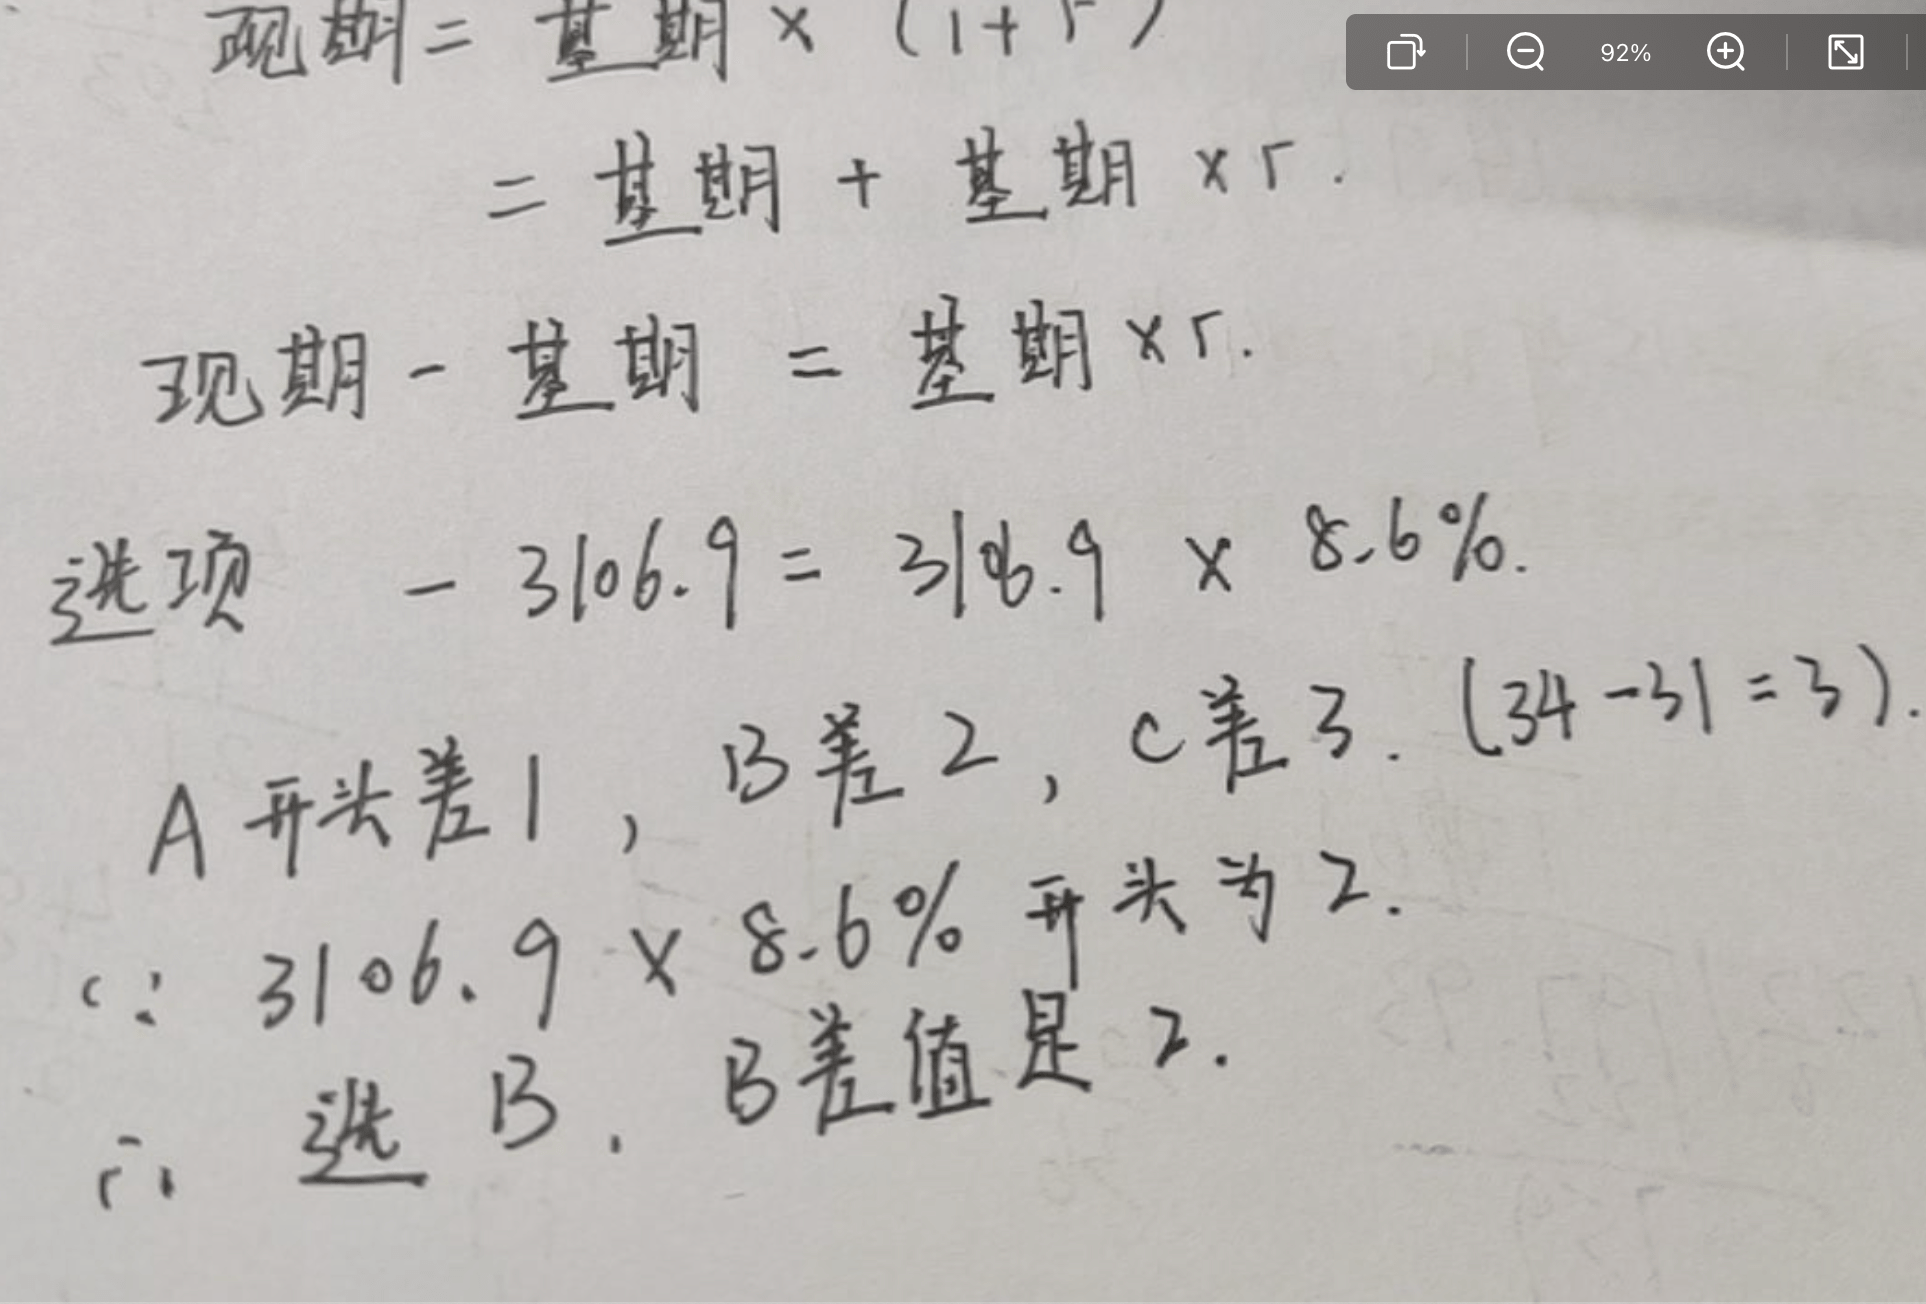 92%
现期 = 基期 × (1+r)
= 基期 + 基期 × r.
现期 - 基期 = 基期 × r.
选项 - 3106.9 = 3106.9 × 8.6%.
A 开头差1, B差2, C差3. (34-31=3).
∵ 3106.9 × 8.6% 开头为2.
∴ 选 B. B差值是2.